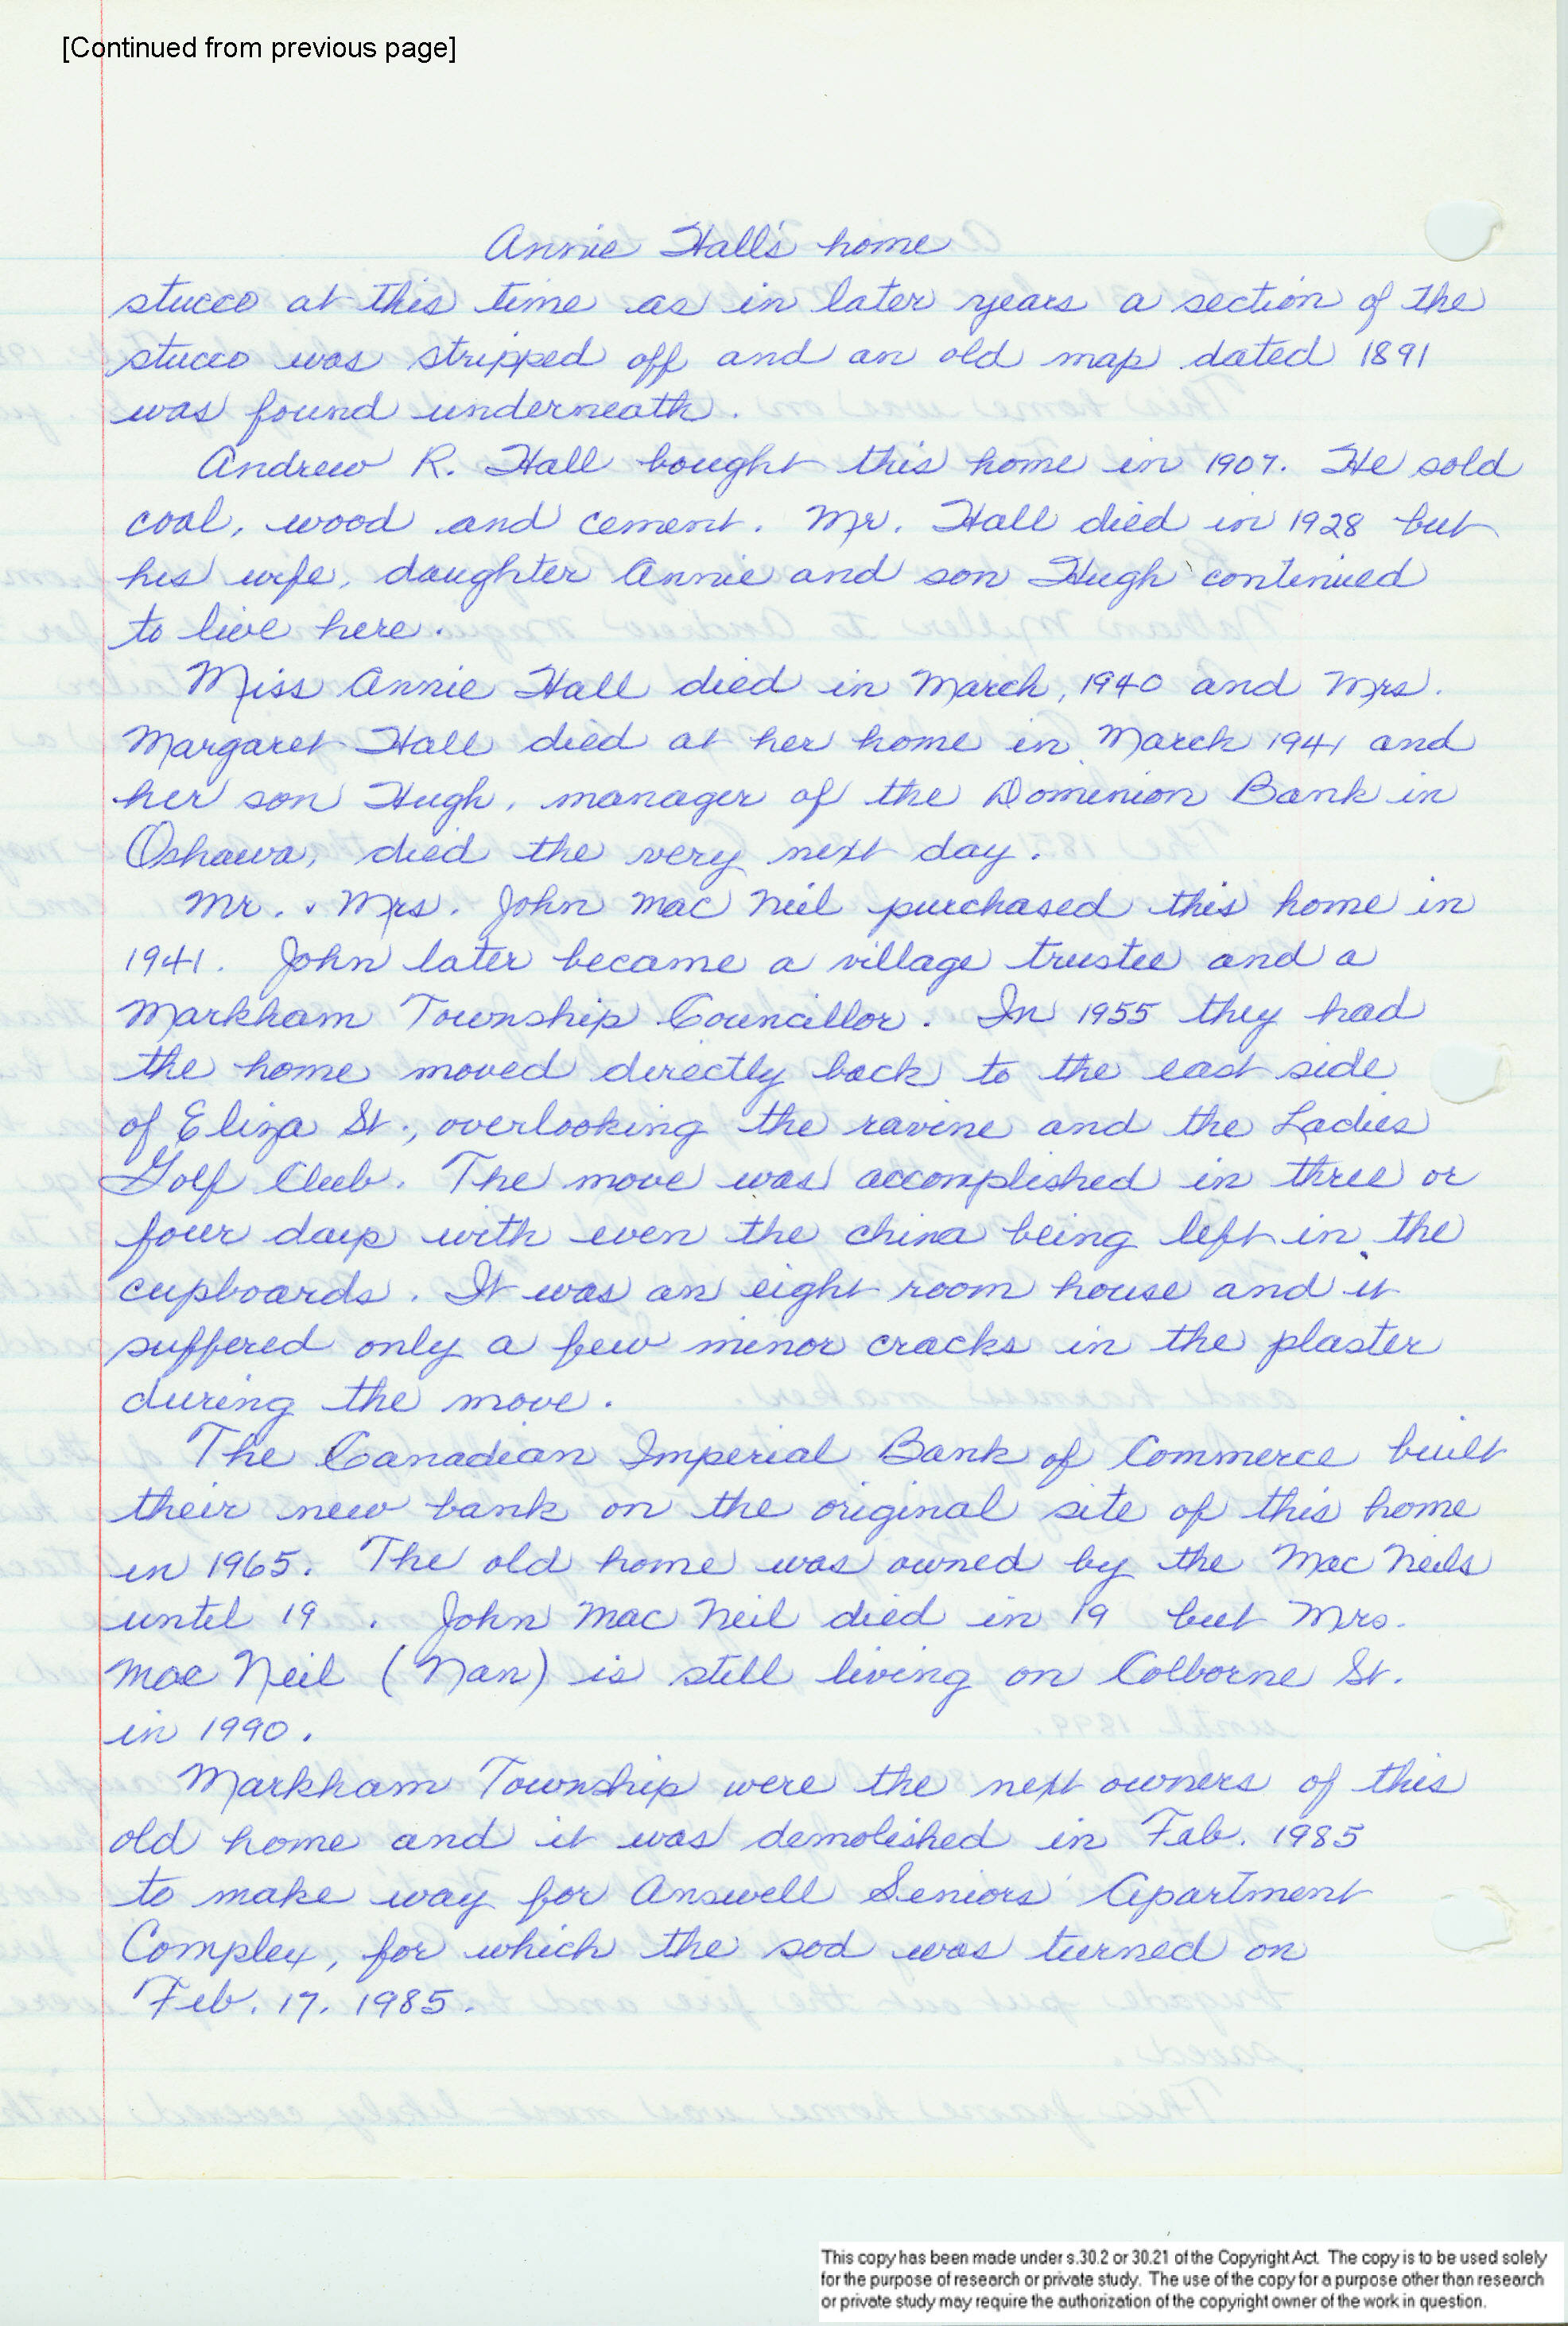 [Continued from previous page]
Annie Hall's home
stucco at this time as in later years a section of the
stucco was stripped off and an old map dated 1891
was found underneath.
Andrew R. Hall bought this home in 1907. He sold
coal, wood and cement. Mr. Hall died in 1928 but
his wife, daughter Annie and son Hugh continued
to live here.
Miss Annie Hall died in March, 1940 and Mrs.
Margaret Hall died at her home in March 1941 and
her son Hugh, manager of the Dominion Bank in
Oshawa, died the very next day.
Mr. & Mrs. John Mac Neil purchased this home in
1941. John later became a village trustee and a
Markham Township Councillor. In 1955 they had
the home moved directly back to the east side
of Eliza St., overlooking the ravine and the Ladies
Golf Club. The move was accomplished in three or
four days with even the china being left in the
cupboards. It was an eight room house and it
suffered only a few minor cracks in the plaster
during the move.
The Canadian Imperial Bank of Commerce built
their new bank on the original site of this home
in 1965. The old home was owned by the Mac Neils
until 19 . John Mac Neil died in 19 but Mrs.
Mac Neil (Nan) is still living on Colborne St.
in 1990.
Markham Township were the next owners of this
old home and it was demolished in Feb. 1985
to make way for Answell Seniors' Apartment
Complex, for which the sod was turned on
Feb. 17, 1985.
This copy has been made under s.30.2 or 30.21 of the Copyright Act. The copy is to be used solely
for the purpose of research or private study. The use of the copy for a purpose other than research
or private study may require the authorization of the copyright owner of the work in question.